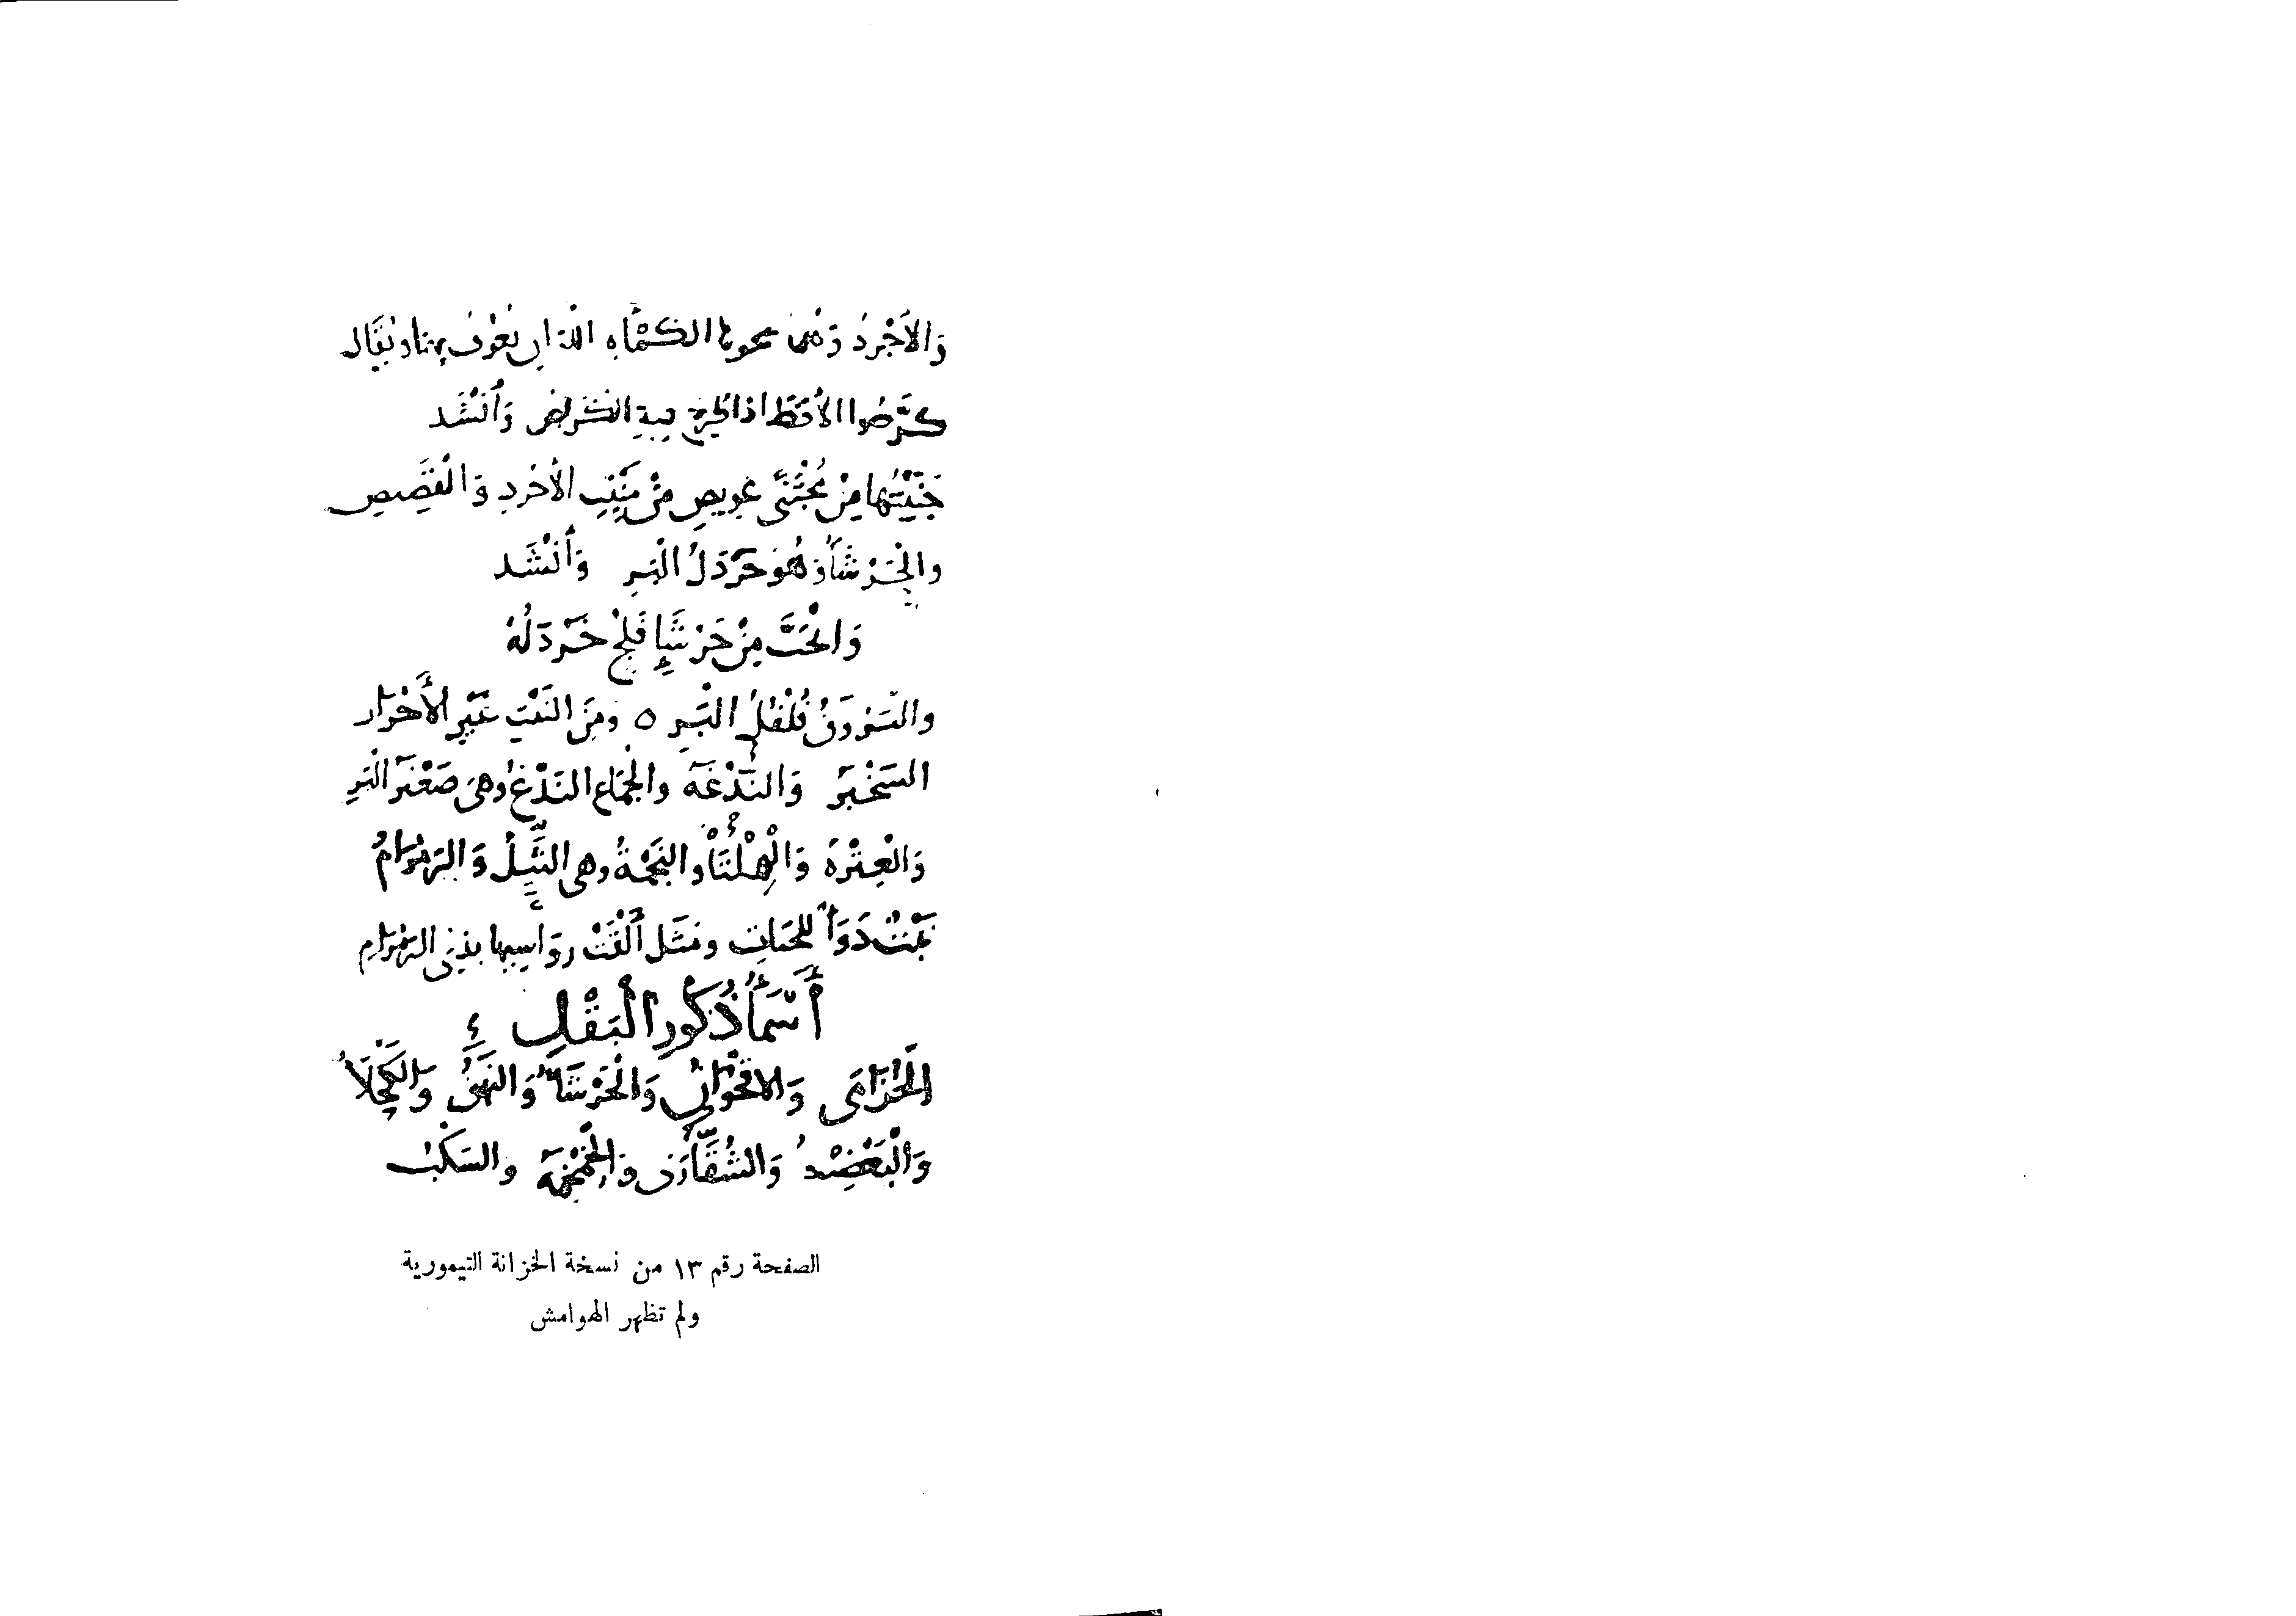 وَالأَجْرَدُ وَهُمَا الكَمْأَةِ اللذان تُعْرَفُ بهِمَا وَيُقَال
كَرَّضُوا الأَقِطَ اذا الكَرِيضِ وَأَنْشَد
جَنَيْتُهَا مِنْ مُجْتَنًى عَوِيصِ مِنْ مَنْبِتِ الأَجْرَدِ وَالْقَصِيصِ
والْخَرْشَأُ وَهُوَ خَرْدَلُ الْبَرِ وَأَنْشَد
وَانْحَتَّ مِنْ حَرْشَاءِ فَلْجٍ خَرْدَلُهُ
فُلْفُلُ الْبَرِ ٥ وَمِنَ النَّبْتِ غَيْرِ الأَحْرَار
السَخْبَرُ وَالنَّدْغَةُ والجِمَاع النَدْغُ وَهِيَ صَعْتَرُ الْبَرِ
وَالْعِتْرَةُ وَالْهِلْتَأْ والنَجْمَةُ وهى الثَّيِّلُ وَالرَمْرَامُ
نَبْتٌ دَوَاءٌ لِلحَيَاتِ وَمَثَل أَلْقَتْ رَوَاسِيهَا بِذِى الرَمْرَامِ
أَسْمَأُ ذُكُورِ الْبَقْلِ
الْخُزَامَى وَالاقْحُوَانُ وَالْحَرْشَأُ وَالنَهَقُ وَالْكَحْلَأُ
وَالْيَعْضِيدُ وَالشُقَّارَى وَالْخِمْخِمُ والسَكَبُ
الصفحة رقم ١٣ من نسخة الخزانة التيمورية
ولم تظهر الهوامش